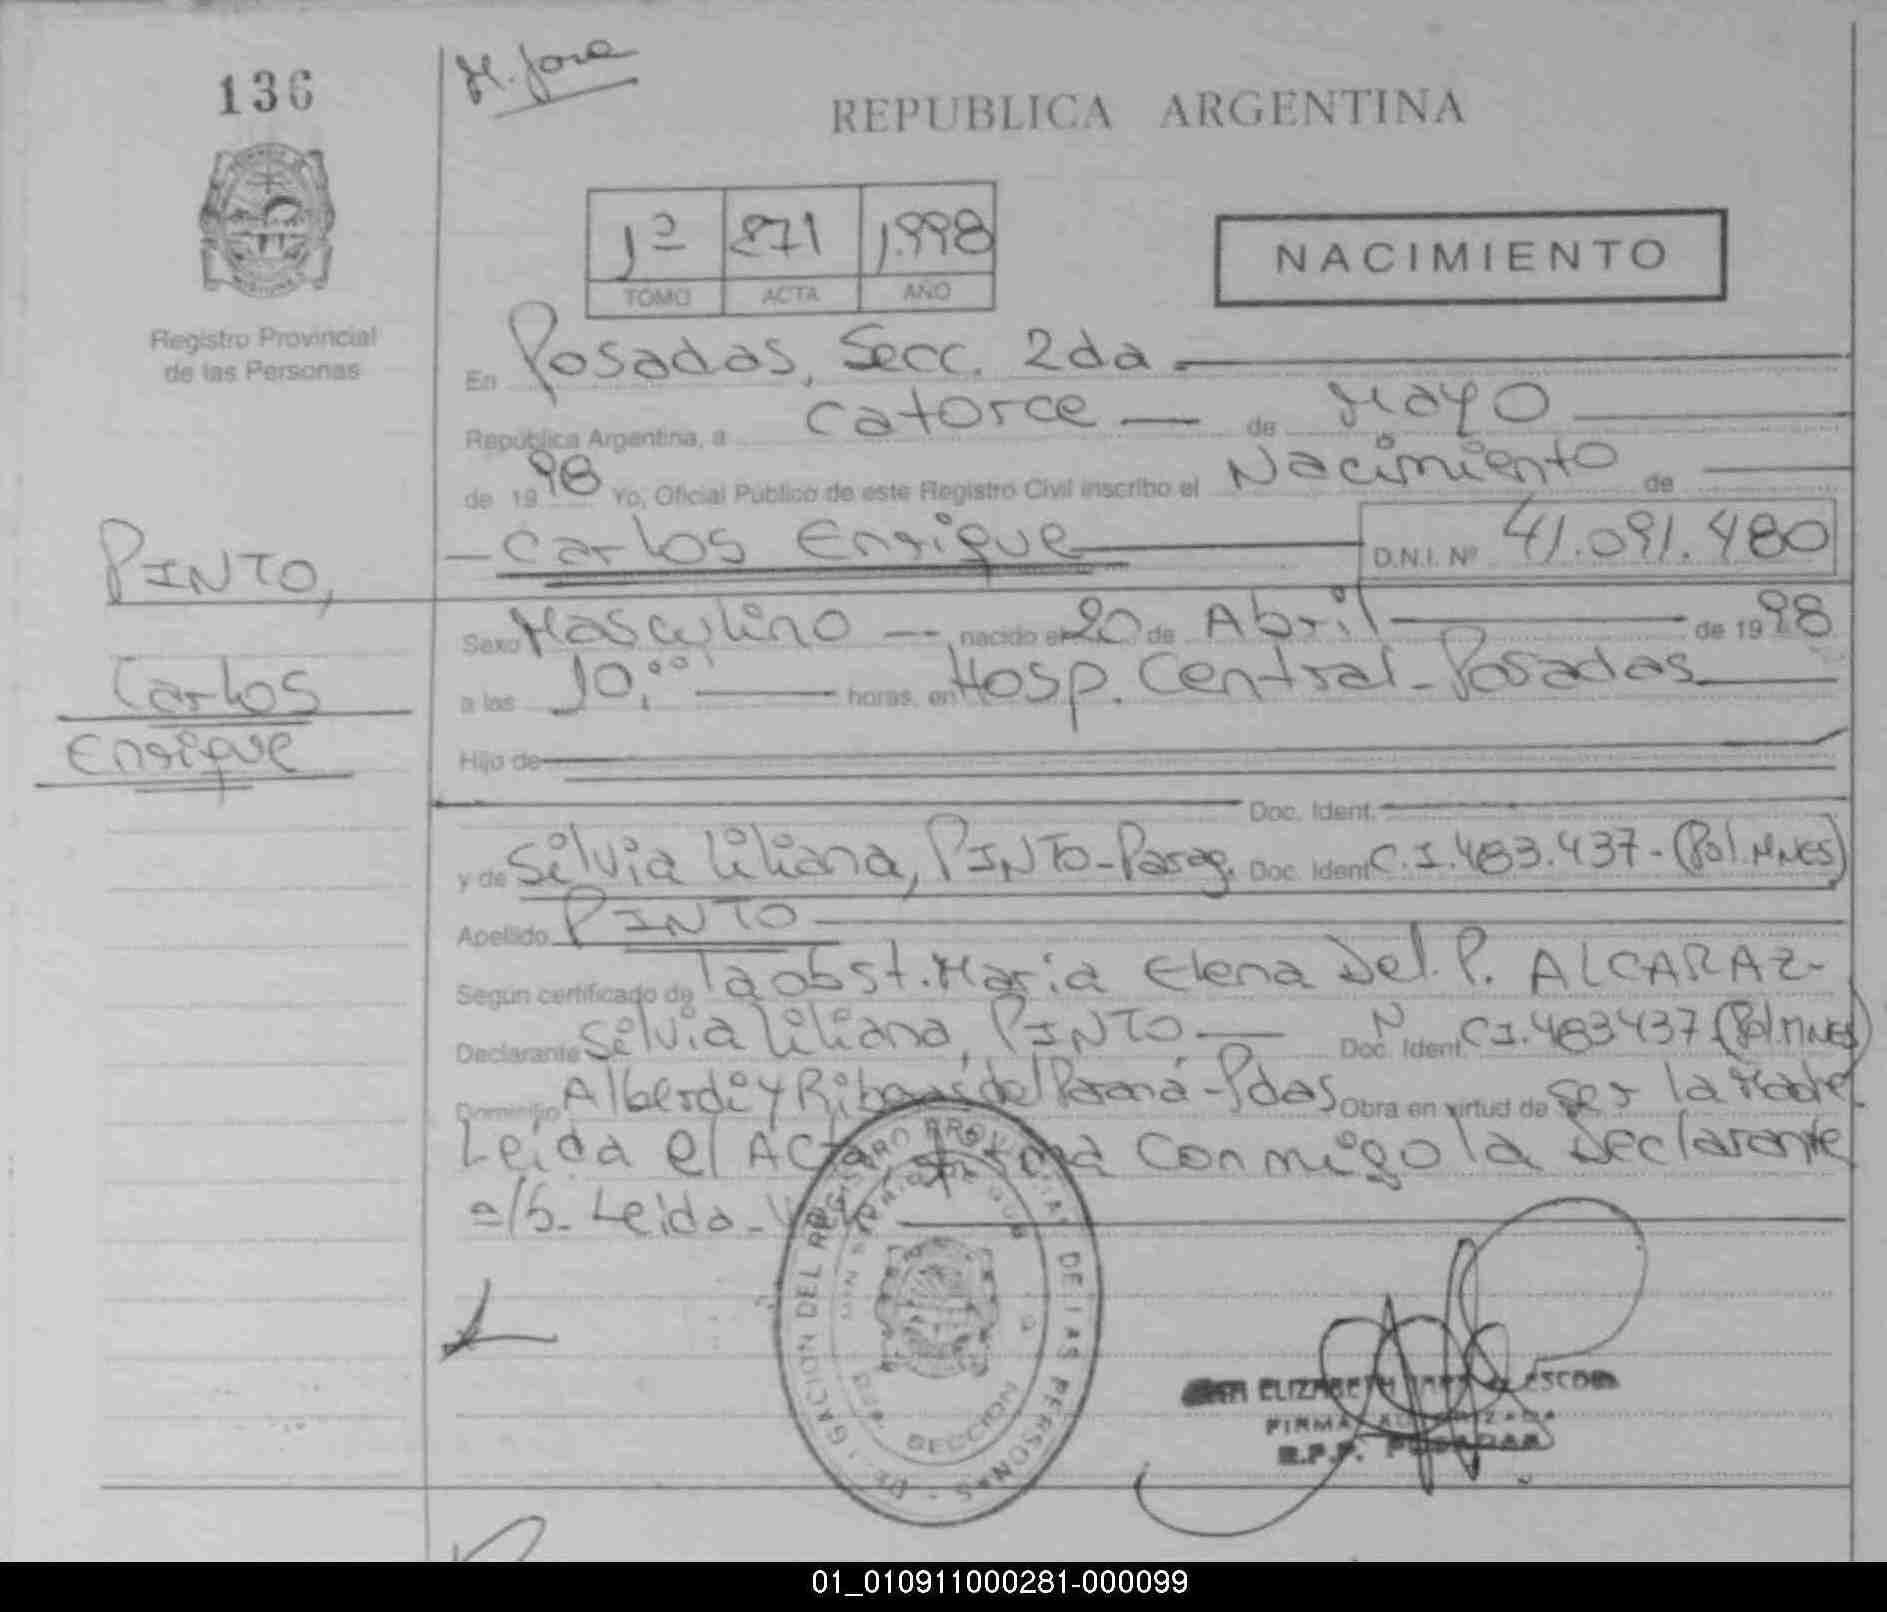 136
M. José
REPUBLICA ARGENTINA
1º 271 1.998
TOMO ACTA AÑO
NACIMIENTO
Registro Provincial
de las Personas
En Posadas, Secc. 2da
República Argentina, a catorce de Mayo
de 1998 Yo, Oficial Público de este Registro Civil inscribo el Nacimiento de
Carlos Enrique D.N.I. Nº 41.091.480
PINTO,
Carlos
Enrique
Sexo Masculino nacido el 20 de Abril de 1998
a las 10:00 horas, en Hosp. Central - Posadas
Hijo de
Doc. Ident.
y de Silvia Liliana, PINTO - Parag. Doc. Ident C.I. 483.437 - (Pol. MNES)
Apellido PINTO
Según certificado de la obst. Maria Elena Del. P. ALCARAZ -
Declarante Silvia Liliana, PINTO Doc. Ident. C.I. 483437 (Pol. MNES)
Domicilio Alberdi y del Paraná - Pdas Obra en virtud de ser la Madre
Leida el Acta firma conmigo la Declarante
Leido
DELEGACION DEL REGISTRO PROVINCIAL DE LAS PERSONAS
SECCION
ELIZABETH
FIRMA AUTORIZADA
R.P.P. POSADAS
01_010911000281-000099